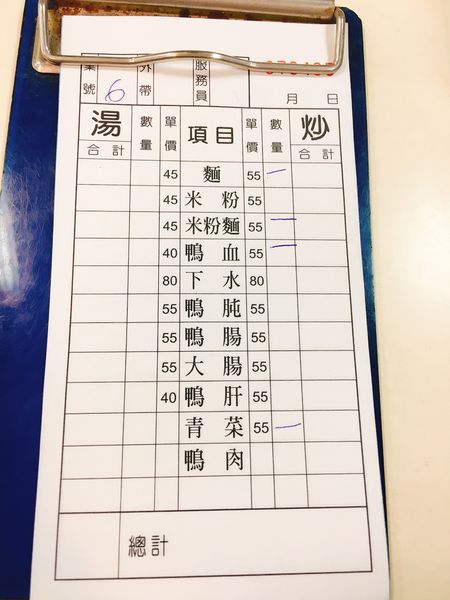 桌號 6 外帶 服務員
月 日
湯 數量 單價 項目 單價 數量 炒
合計 合計
45 麵 55 一
45 米粉 55
45 米粉麵 55 一
40 鴨血 55 一
80 下水 80
55 鴨肫 55
55 鴨腸 55
55 大腸 55
40 鴨肝 55
青菜 55 一
鴨肉
總計